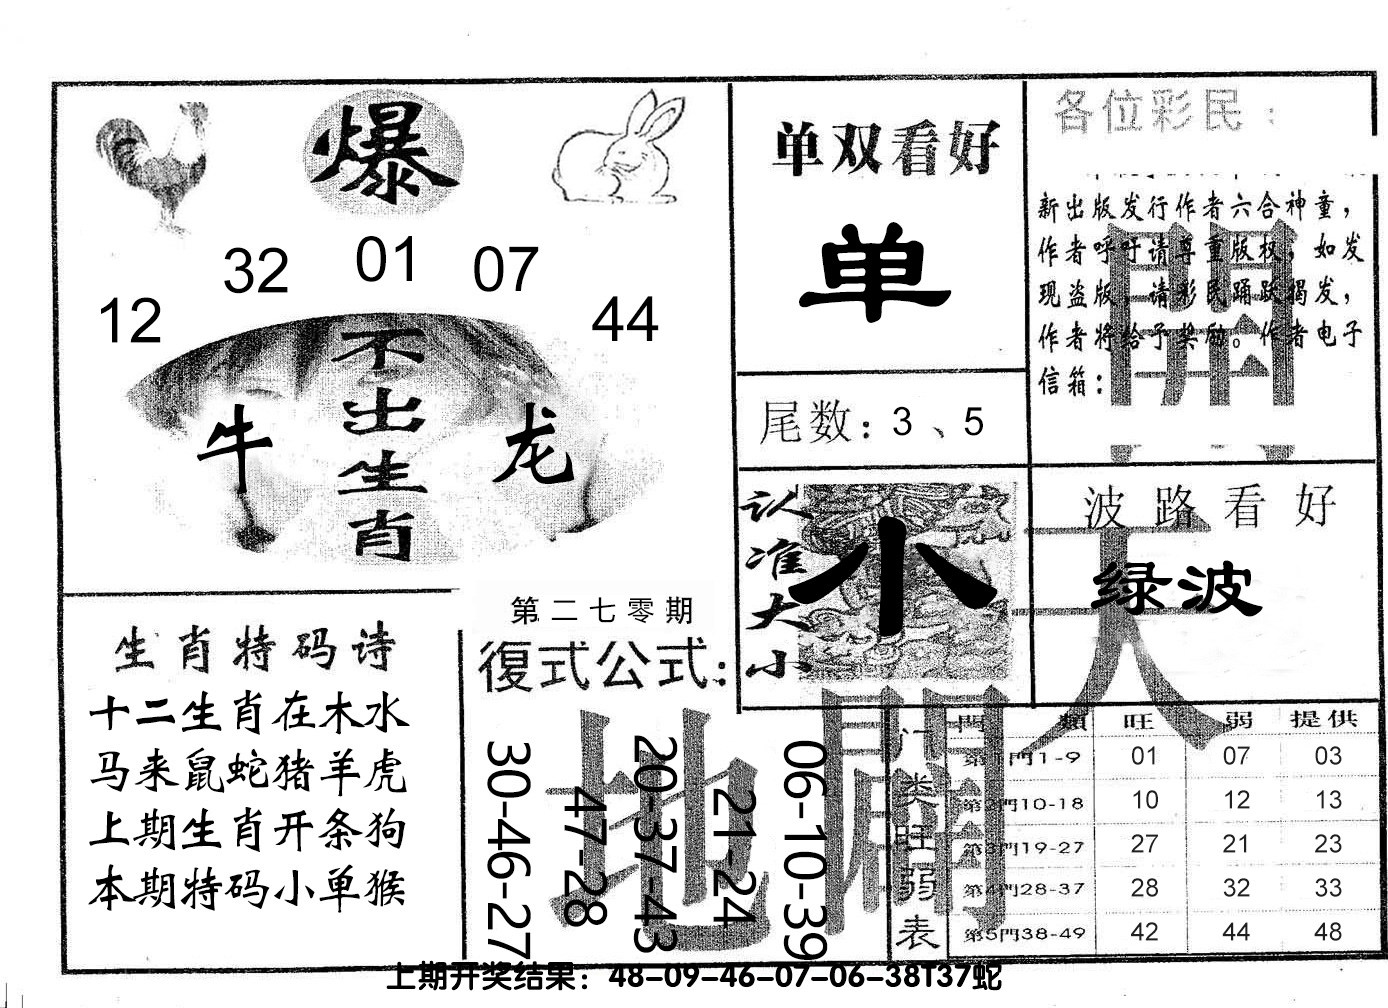 爆
12 32 01 07 44
不出生肖
牛
龙
单双看好
单
尾数：3、5
各位彩民：
新出版发行作者六合神童，
作者呼吁请尊重版权，如发
现盗版，请彩民踊跃揭发，
作者将给予奖励。作者电子
信箱：
開
认准大小
小
波路看好
绿波
天
生肖特码诗
十二生肖在木水
马来鼠蛇猪羊虎
上期生肖开条狗
本期特码小单猴
第二七零期
復式公式：
30-46-27
47-28
20-37-43
21-24
06-10-39
地
闢
门类旺弱表
門類 旺 弱 提供
第1門1-9 01 07 03
第2門10-18 10 12 13
第3門19-27 27 21 23
第4門28-37 28 32 33
第5門38-49 42 44 48
上期开奖结果：48-09-46-07-06-38T37蛇